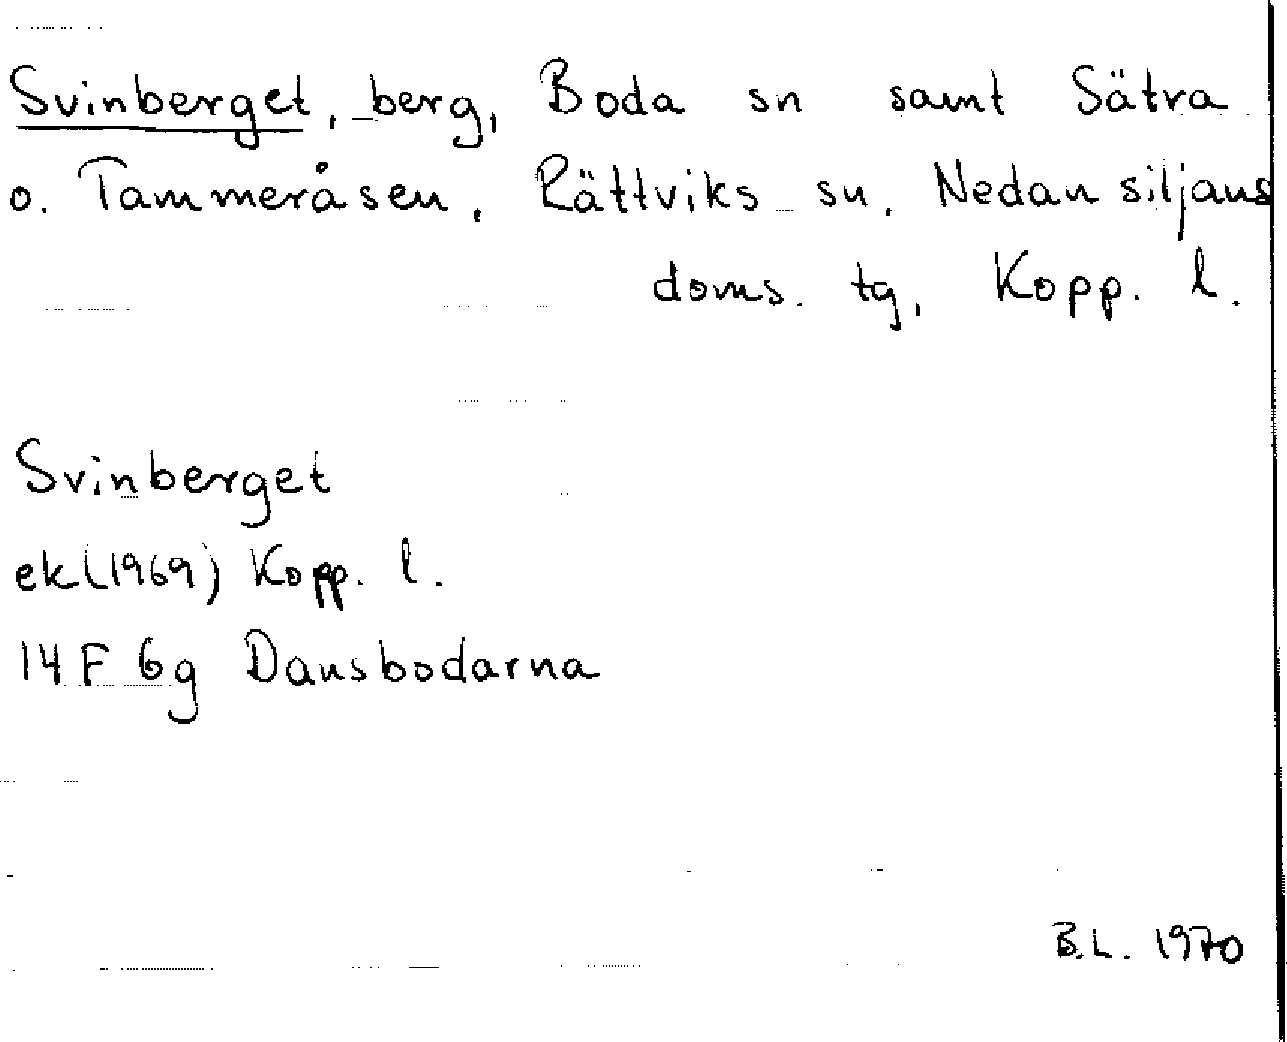 Svinberget, berg, Boda sn samt Sätra
o. Tammeråsen, Rättviks sn, Nedansiljans
doms. tg, Kopp. l.
Svinberget
ek(1969) Kopp. l.
14 F 6g Dansbodarna
B.L. 1970